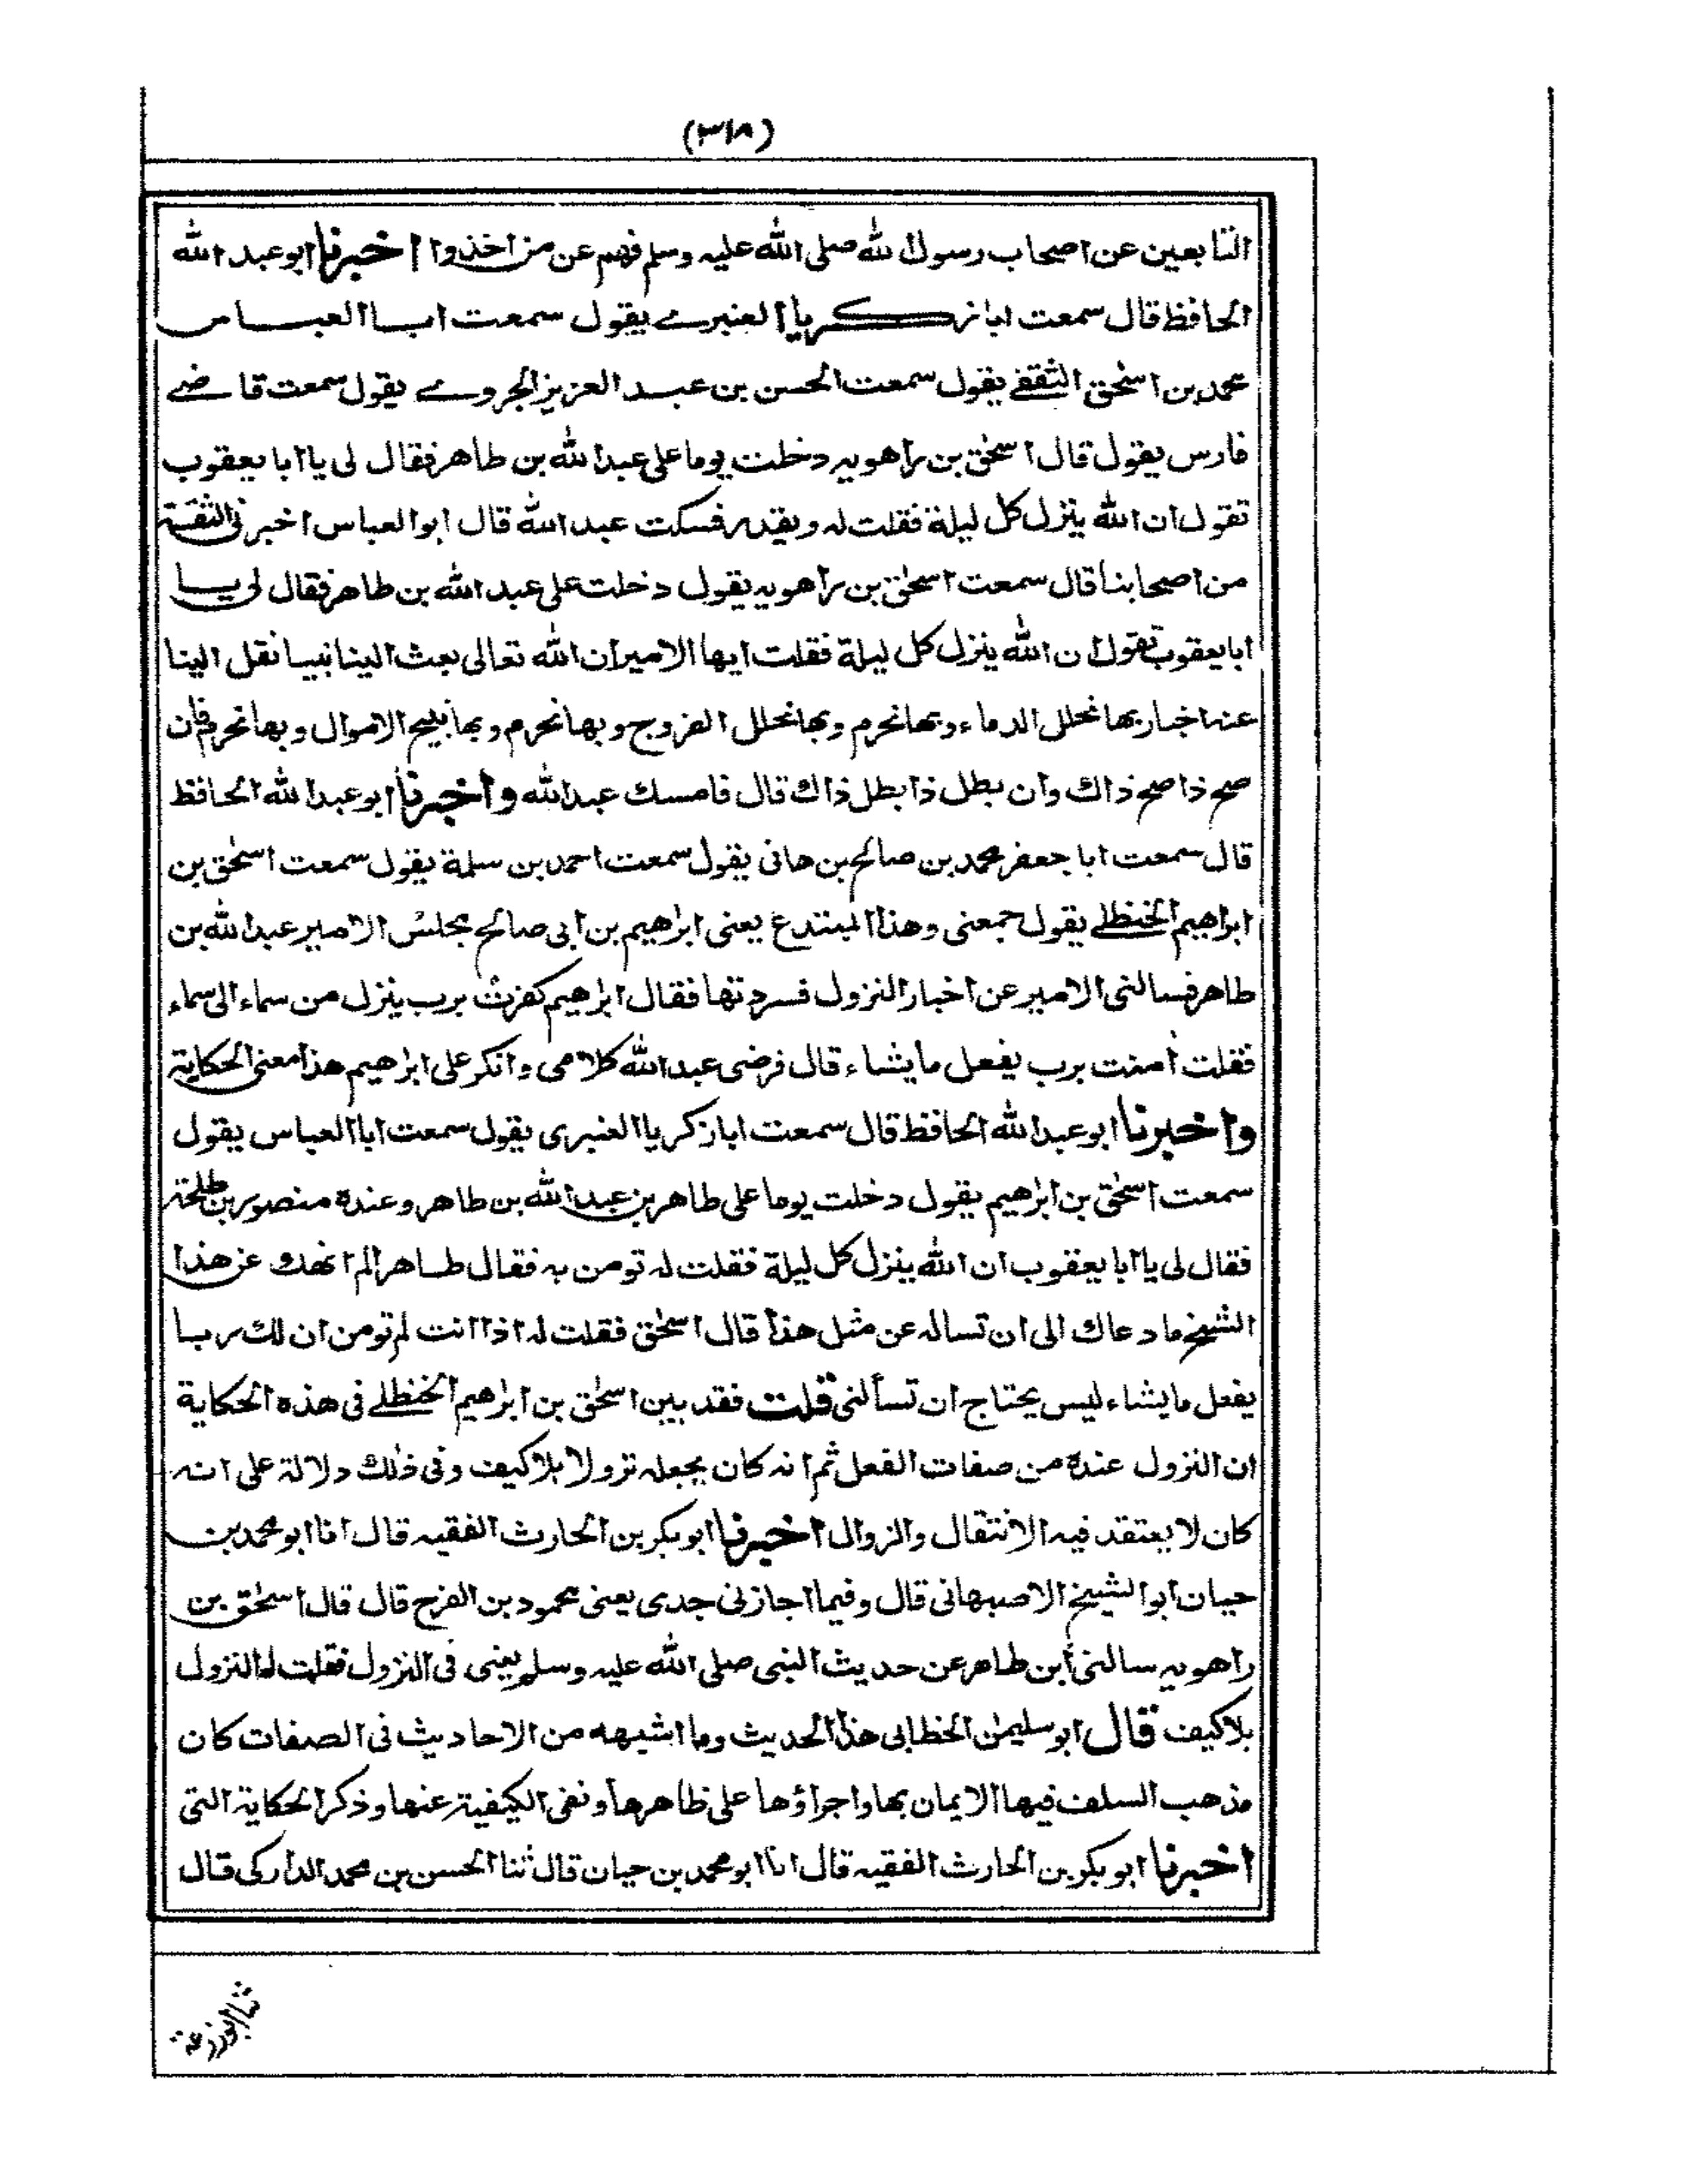 (٣١٨)
التابعين عن اصحاب رسول الله صلى الله عليه وسلم فهم عن من اخذوا اخبرنا ابو عبد الله
الحافظ قال سمعت ابا زكريا العنبرے يقول سمعت ابا العباس
محمد بن اسحٰق الثقفے يقول سمعت الحسن بن عبد العزيز الجروے يقول سمعت قاضے
فارس يقول قال اسحٰق بن راهويه دخلت يوما على عبد الله بن طاهر فقال لى يا ابا يعقوب
تقول ان الله ينزل كل ليلة فقلت له ويقدر فسكت عبد الله قال ابو العباس اخبرنى الثقة
من اصحابنا قال سمعت اسحٰق بن راهويه يقول دخلت على عبد الله بن طاهر فقال لى يا
ابا يعقوب تقول ان الله ينزل كل ليلة فقلت ايها الامير ان الله تعالى بعث الينا نبيا نقل الينا
عنه اخبار بها نحلل الدماء وبها نحرم وبها نحلل الفروج وبها نحرم وبها نبيح الاموال وبها نحرم فان
صح ذا صح ذاك وان بطل ذا بطل ذاك قال فامسك عبد الله واخبرنا ابو عبد الله الحافظ
قال سمعت ابا جعفر محمد بن صالح بن هانى يقول سمعت احمد بن سلمة يقول سمعت اسحٰق بن
ابراهيم الحنظلے يقول جمعنى وهذا المبتدع يعنى ابرٰهيم بن ابى صالح مجلس الامير عبد الله بن
طاهر فسالنى الامير عن اخبار النزول فسردتها فقال ابرٰهيم كفرت برب ينزل من سماء الى سماء
فقلت آمنت برب يفعل ما يشاء قال فرضى عبد الله كلامى وانكر على ابرٰهيم هذا معنى الحكاية
واخبرنا ابو عبد الله الحافظ قال سمعت ابا زكريا العنبرى يقول سمعت ابا العباس يقول
سمعت اسحٰق بن ابرٰهيم يقول دخلت يوما على طاهر بن عبد الله بن طاهر وعنده منصور بن طلحة
فقال لى يا ابا يعقوب ان الله ينزل كل ليلة فقلت له تومن به فقال طاهر الم انهك عن هذا
الشيخ ما دعاك الى ان تساله عن مثل هذا قال اسحٰق فقلت له اذا انت لم تومن ان لك ربا
يفعل ما يشاء ليس يحتاج ان تسألنى قلت فقد بين اسحٰق بن ابرٰهيم الحنظلے فى هذه الحكاية
ان النزول عنده من صفات الفعل ثم انه كان يجعله نزولا بلا كيف وفى ذٰلك دلالة على انه
كان لا يعتقد فيه الانتقال والزوال اخبرنا ابو بكر بن الحارث الفقيه قال انا ابو محمد بن
حيان ابو الشيخ الاصبهانى قال وفيما اجازنى جدى يعنى محمود بن الفرج قال قال اسحٰق بن
راهويه سالنى ابن طاهر عن حديث النبى صلى الله عليه وسلم يعنى فى النزول فقلت له النزول
بلا كيف قال ابو سليمٰن الخطابى هذا الحديث وما اشبهه من الاحاديث فى الصفات كان
مذهب السلف فيها الايمان بها واجراؤها على ظاهرها ونفى الكيفية عنها وذكر الحكاية التى
اخبرنا ابو بكر بن الحارث الفقيه قال انا ابو محمد بن حيان قال ثنا الحسن بن محمد الداركى قال
ثنا ابو زرعة